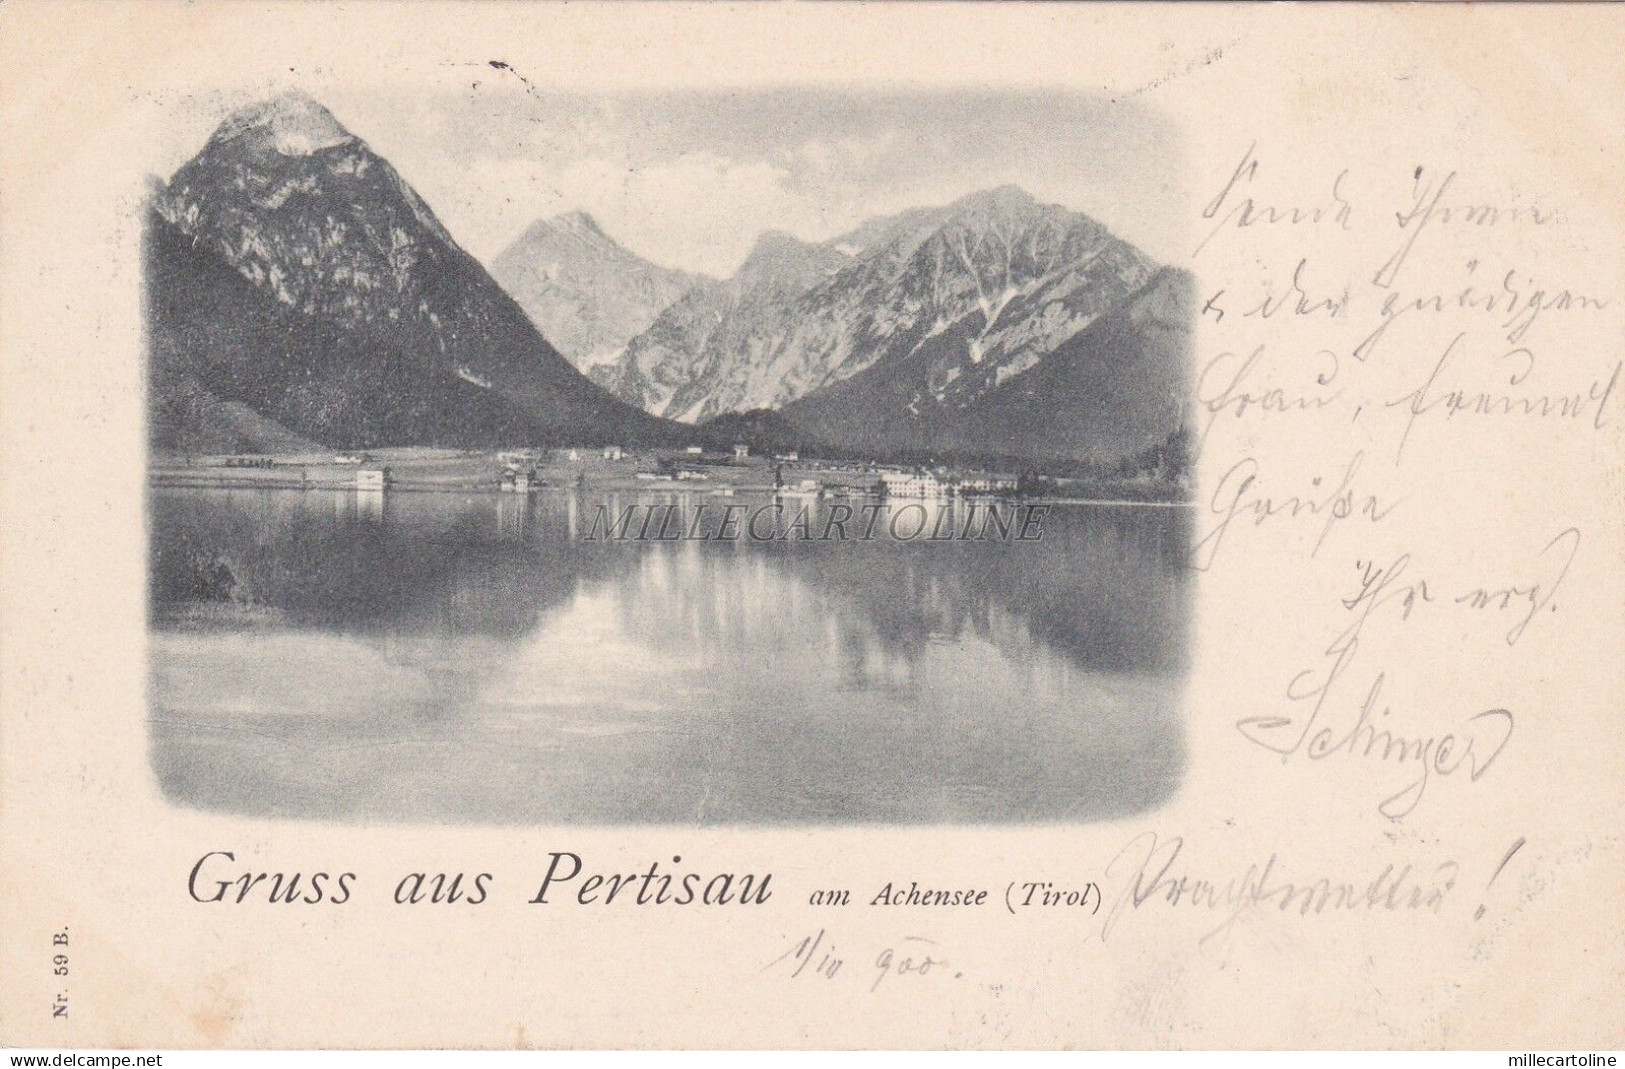 Sende Ihnen
& der gnädigen
Frau, freundl
Grüße
Ihr erg.
MILLECARTOLINE
Gruss aus Pertisau am Achensee (Tirol)
Prachtwetter!
1/10 900.
Nr. 59 B.
millecartoline
www.delcampe.net